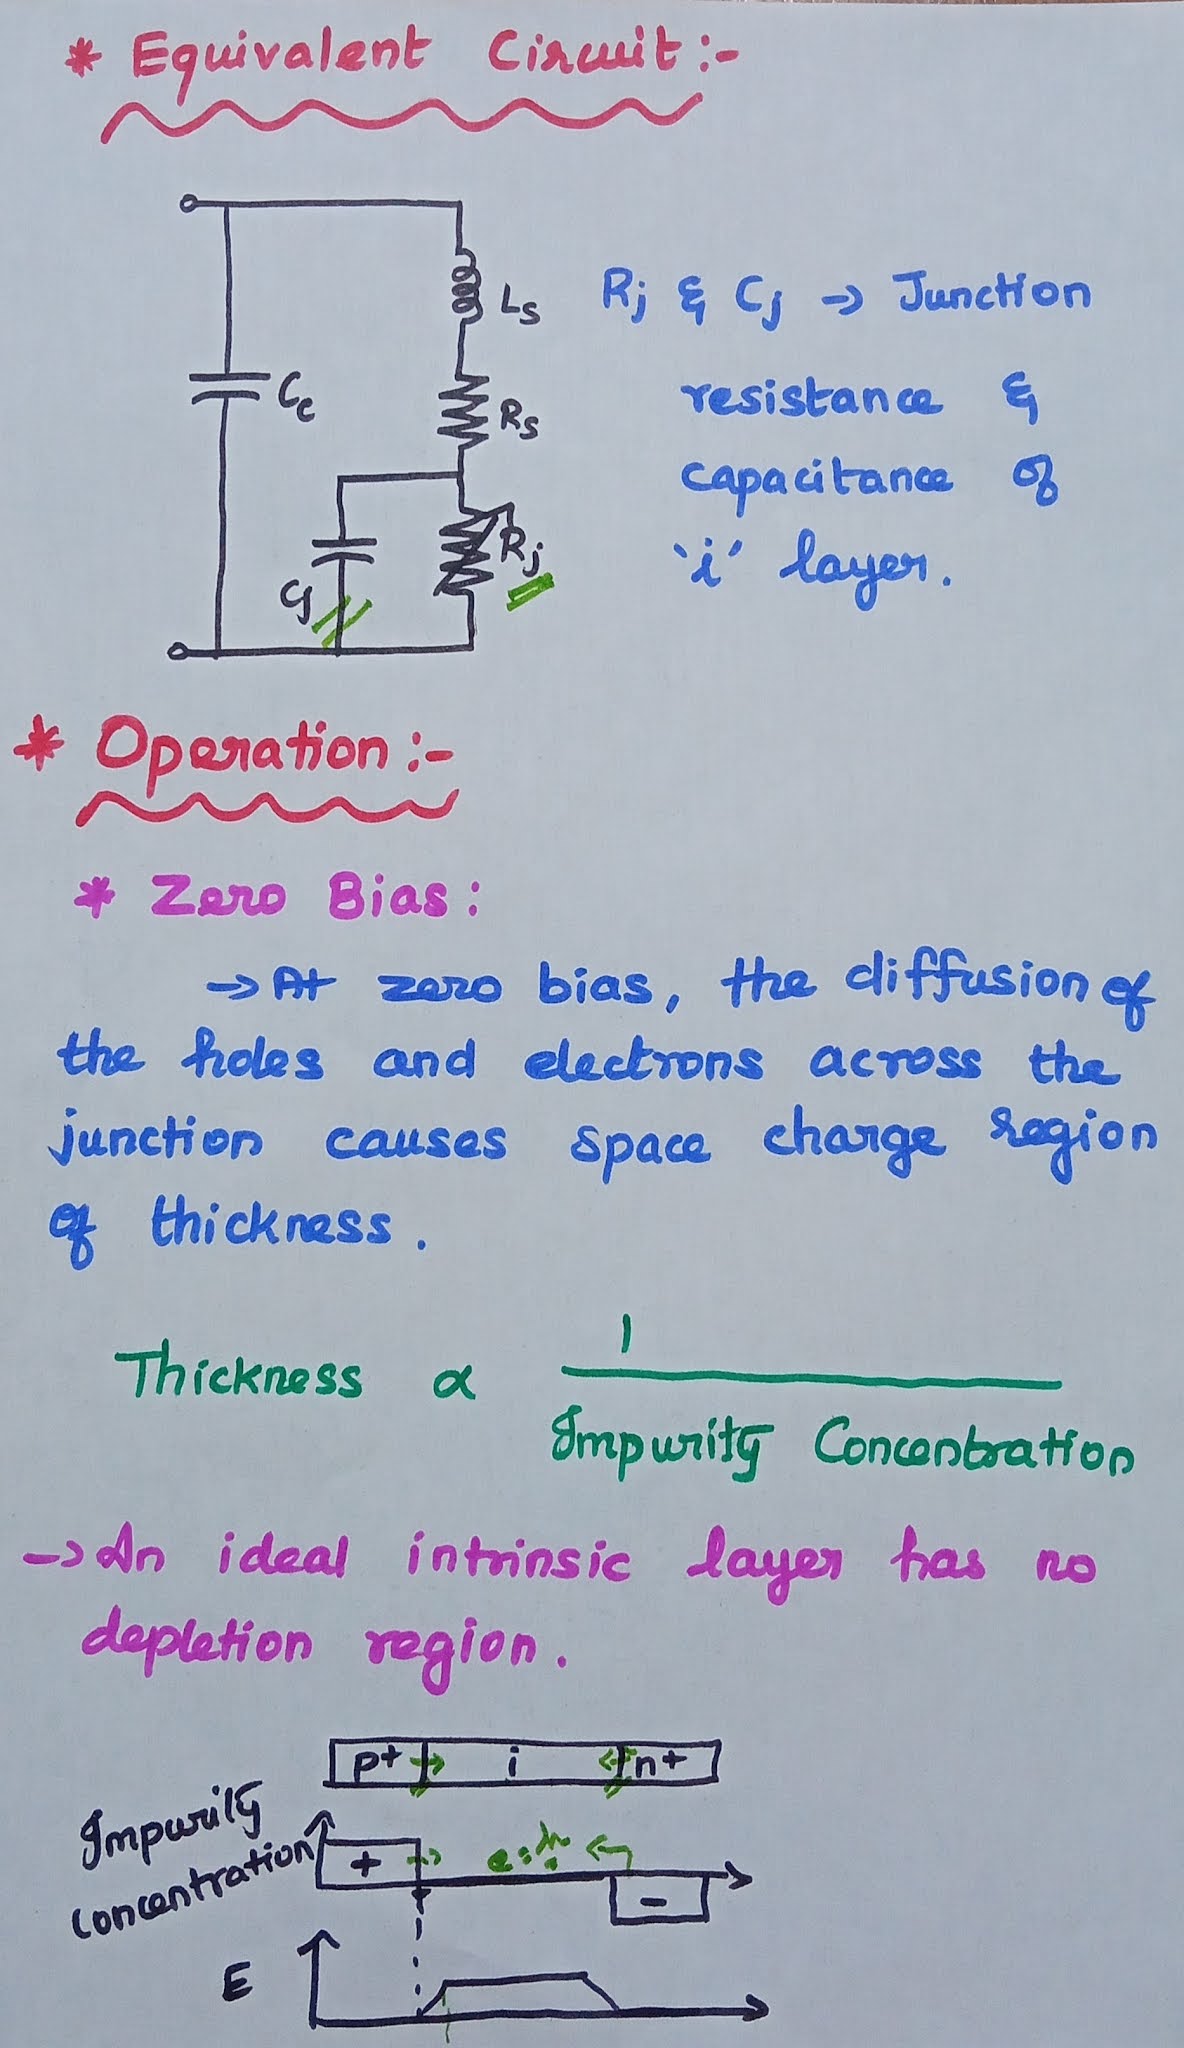 * Equivalent Circuit :-
Ls
Rj & Cj → Junction
Cc
Rs
resistance &
capacitance of
Rj
'i' layer.
Cj
* Operation :-
* Zero Bias :
→ At zero bias, the diffusion of
the holes and electrons across the
junction causes space charge region
of thickness.
Thickness ∝ 1
Impurity Concentration
→ An ideal intrinsic layer has no
depletion region.
p+ → i ← n+
Impurity
concentration
+ → ← -
E